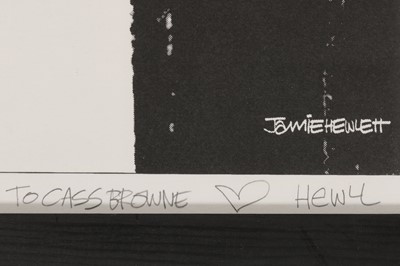 JamieHewlett
TO CASS BROWNE ♡ HEWLL